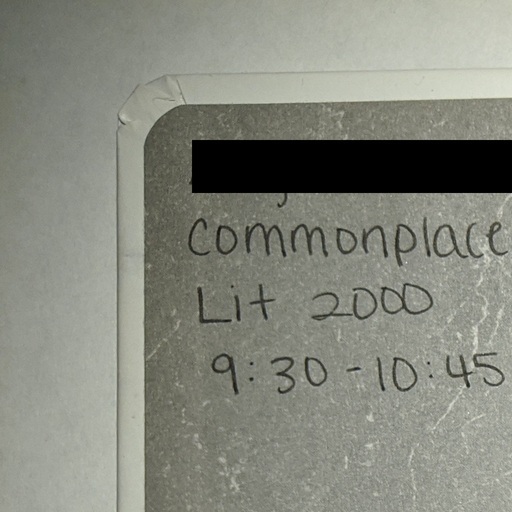 commonplace
Lit 2000
9:30-10:45